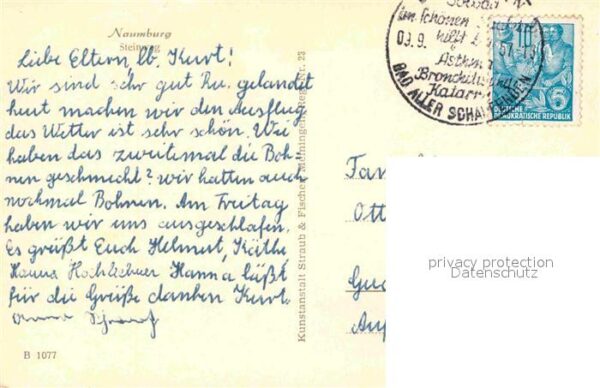 Naumburg
Steinweg
Liebe Eltern, lb. Kurt!
Wir sind sehr gut gelandet
heut machen wir den Ausflug
das Wetter ist sehr schön. Wie
haben das zweitemal die Boh-
nen geschmeckt? wir hatten auch
nochmal Bohnen. Am Freitag
haben wir uns ausgeschlafen.
Es grüßt Euch Helmut, Käthe,
Hanna Hanna läßt
für die Grüße danken Kurt.
B 1077
Kunstanstalt Straub & Fischer Meiningen Reg. Nr. 23
Solbad
im schönen
03.9. hilft 57
Asthma
Bronchitis
Katarr
BAD
DEUTSCHE
DEMOKRATISCHE REPUBLIK
6
Fam
Ott
privacy protection
Datenschutz
Gu
Auf